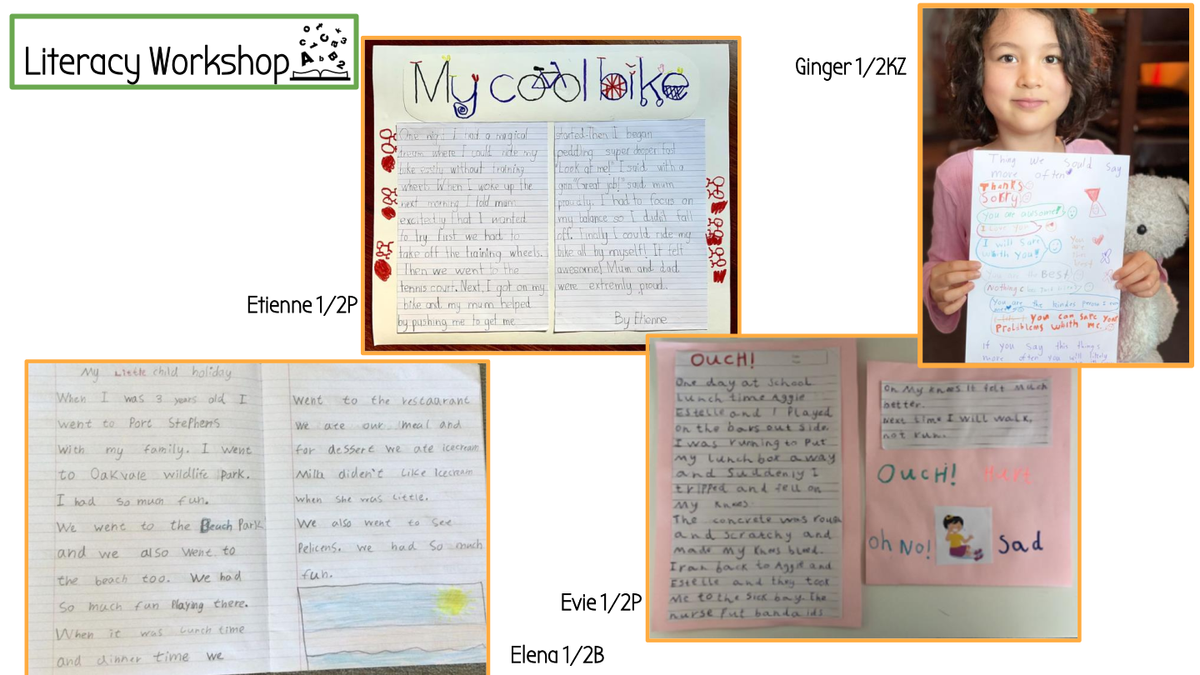 Literacy Workshop
My cool bike
One day I had a magical
dream where I could ride my
bike easily without training
wheels. When I woke up the
next morning I told mum
excitedly that I wanted
to try. First we had to
take off the training wheels.
Then we went to the
tennis court. Next, I got on my
bike and my mum helped
by pushing me to get me
started. Then I began
peddling super
Look at me!" I said with a
"Great job!" said mum
prously. I had to focus on
my balance so I didn't fall
off. Finally I could ride my
bike all by myself! It felt
awesome! Mum and dad
were extremly proud.
By Etienne
Etienne 1/2P
Ginger 1/2KZ
Thing we sould say
more often
Thanks
Sorry
You are awesome!
I Love You
I will sare
with you!
You
are
the
best
BEST
You are the kindest person I
You can sare your
Problibems whith me.
if you say this things
more often you will
My Little child holiday
When I was 3 years old I
went to Port Stephens
With my family. I went
to Oakvale wildlife Park.
I had so much fun.
We went to the Beach Park
and we also went to
the beach too. We had
So much fun Playing there.
When it was Lunch time
and dinner time we
Went to the restaurant
We ate our meal and
for dessert we ate icecream
Milla diden't Like Icecream
when she was Little.
We also went to see
Pelicens. we had so much
fun.
Elena 1/2B
OUCH!
One day at School
Lunch time Aggie
Estelle and I Played
on the bars out side.
I was running to Put
My lunch box away
and Suddenly I
tripped and fell on
My knees.
The concrete was rough
and Scratchy and
made My knees bleed.
I ran back to Aggie and
Estelle and they took
Me to the Sick bay. The
nurse Put banda ids
on My knees. It felt Much
better.
next time I will walk,
not run.
OUCH! Hurt
Oh No! Sad
Evie 1/2P